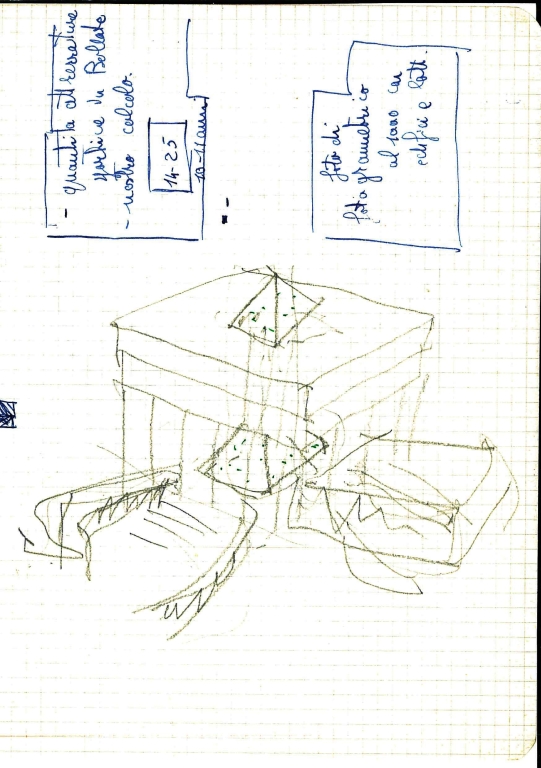 - Quantità attrezzature
sportive in Bollate
- nostro calcolo.
14-25
10-11 anni
foto di
fotogrammetrico
al 1000 con
edifici e lotti.